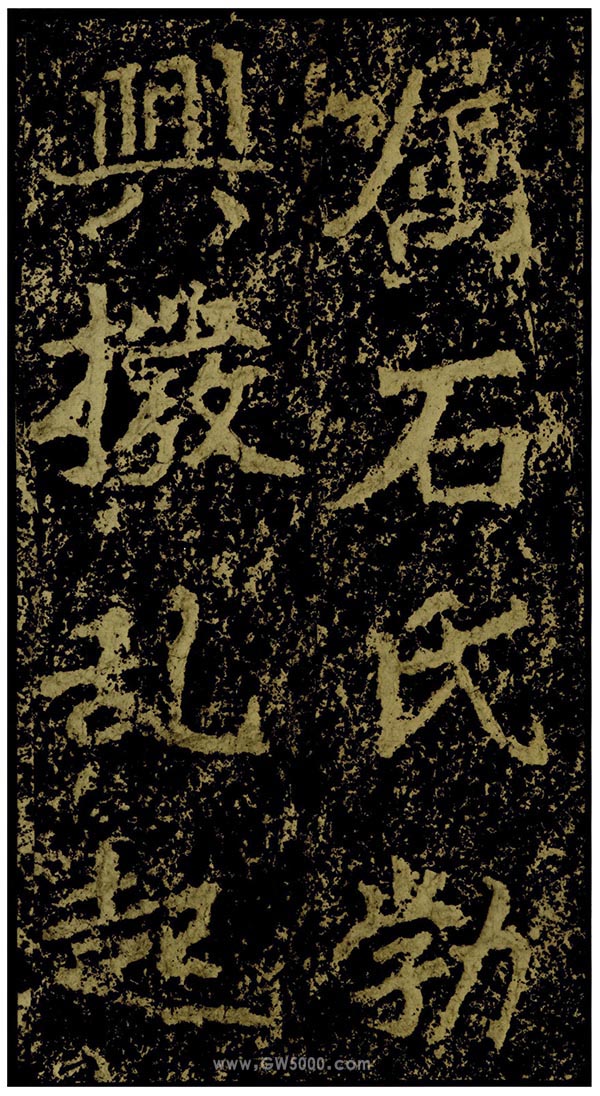 属石氏勃
興撥乱起
www.GW5000.com